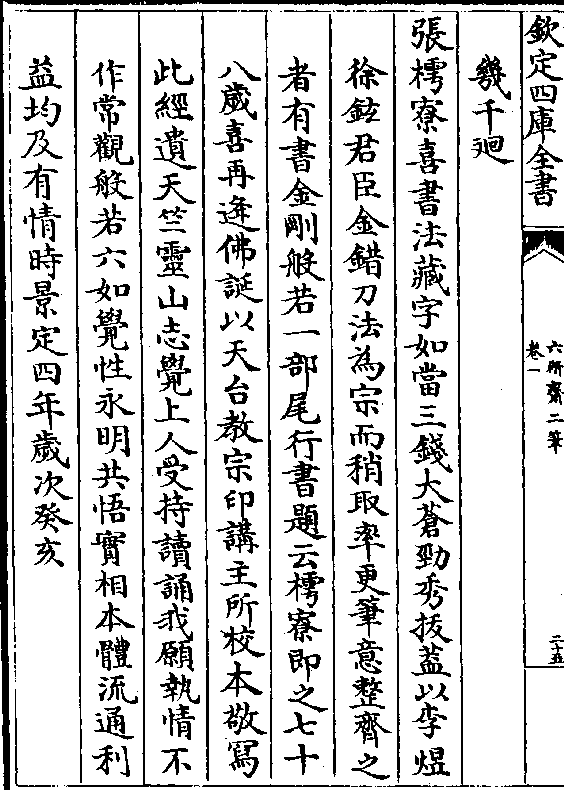 欽定四庫全書
六研齋二筆
卷一
二十五
幾千迴
張樗寮喜書法藏字如當三錢大蒼勁秀拔葢以李煜
徐鉉君臣金錯刀法為宗而稍取率更筆意整齊之
者有書金剛般若一部尾行書題云樗寮即之七十
八歲喜再逢佛誕以天台教宗印講主所校本敬寫
此經遺天竺靈山志覺上人受持讀誦我願執情不
作常觀般若六如覺性永明共悟實相本體流通利
益均及有情時景定四年歲次癸亥